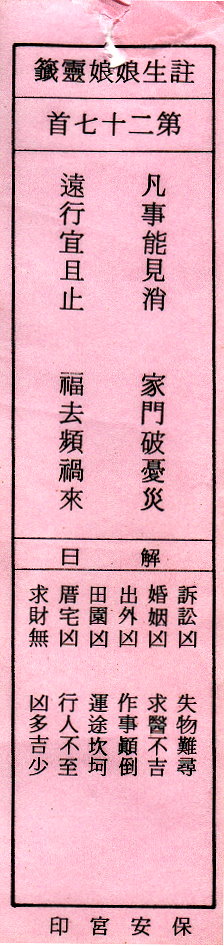 註生娘娘靈籤
第二十七首
凡事能見消　家門破憂災
遠行宜且止　福去頻禍來
解曰
訴訟凶　失物難尋
婚姻凶　求醫不吉
出外凶　作事顚倒
田園凶　運途坎坷
厝宅凶　行人不至
求財無　凶多吉少
保安宮印